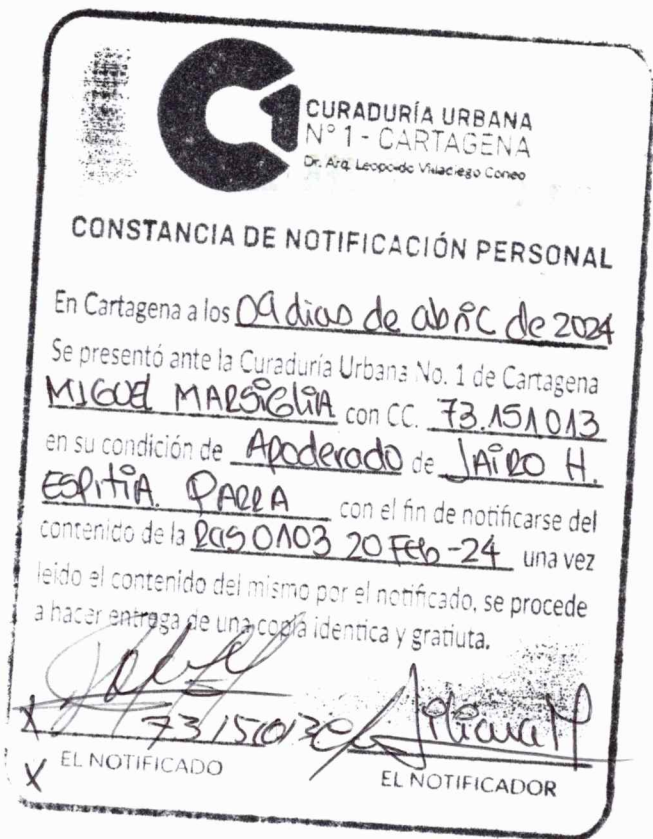 CURADURÍA URBANA
N° 1 - CARTAGENA
Dr. Arq. Leopoldo Villadiego Coneo
CONSTANCIA DE NOTIFICACIÓN PERSONAL
En Cartagena a los 09 dias de abril de 2024
Se presentó ante la Curaduría Urbana No. 1 de Cartagena
MIGUEL MARSIGLIA con CC. 73.151013
en su condición de Apoderado de JAIRO H.
ESPITIA PARRA con el fin de notificarse del
contenido de la RES 0103 20 FEB-24 una vez
leido el contenido del mismo por el notificado, se procede
a hacer entrega de una copia identica y gratiuta.
X 73151013
X EL NOTIFICADO
EL NOTIFICADOR